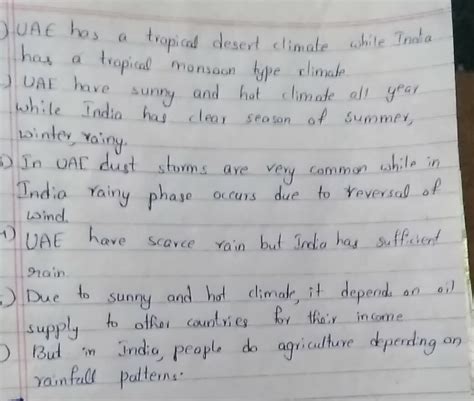 ) UAE has a tropical desert climate while India
has a tropical monsoon type climate.
) UAE have sunny and hot climate all year
while India has clear season of summer,
winter, rainy.
) In UAE dust storms are very common while in
India rainy phase occurs due to reversal of
wind.
) UAE have scarce rain but India has sufficient
rain.
) Due to sunny and hot climate, it depends on oil
supply to other countries for their income
) But in India, people do agriculture depending on
rainfall patterns.